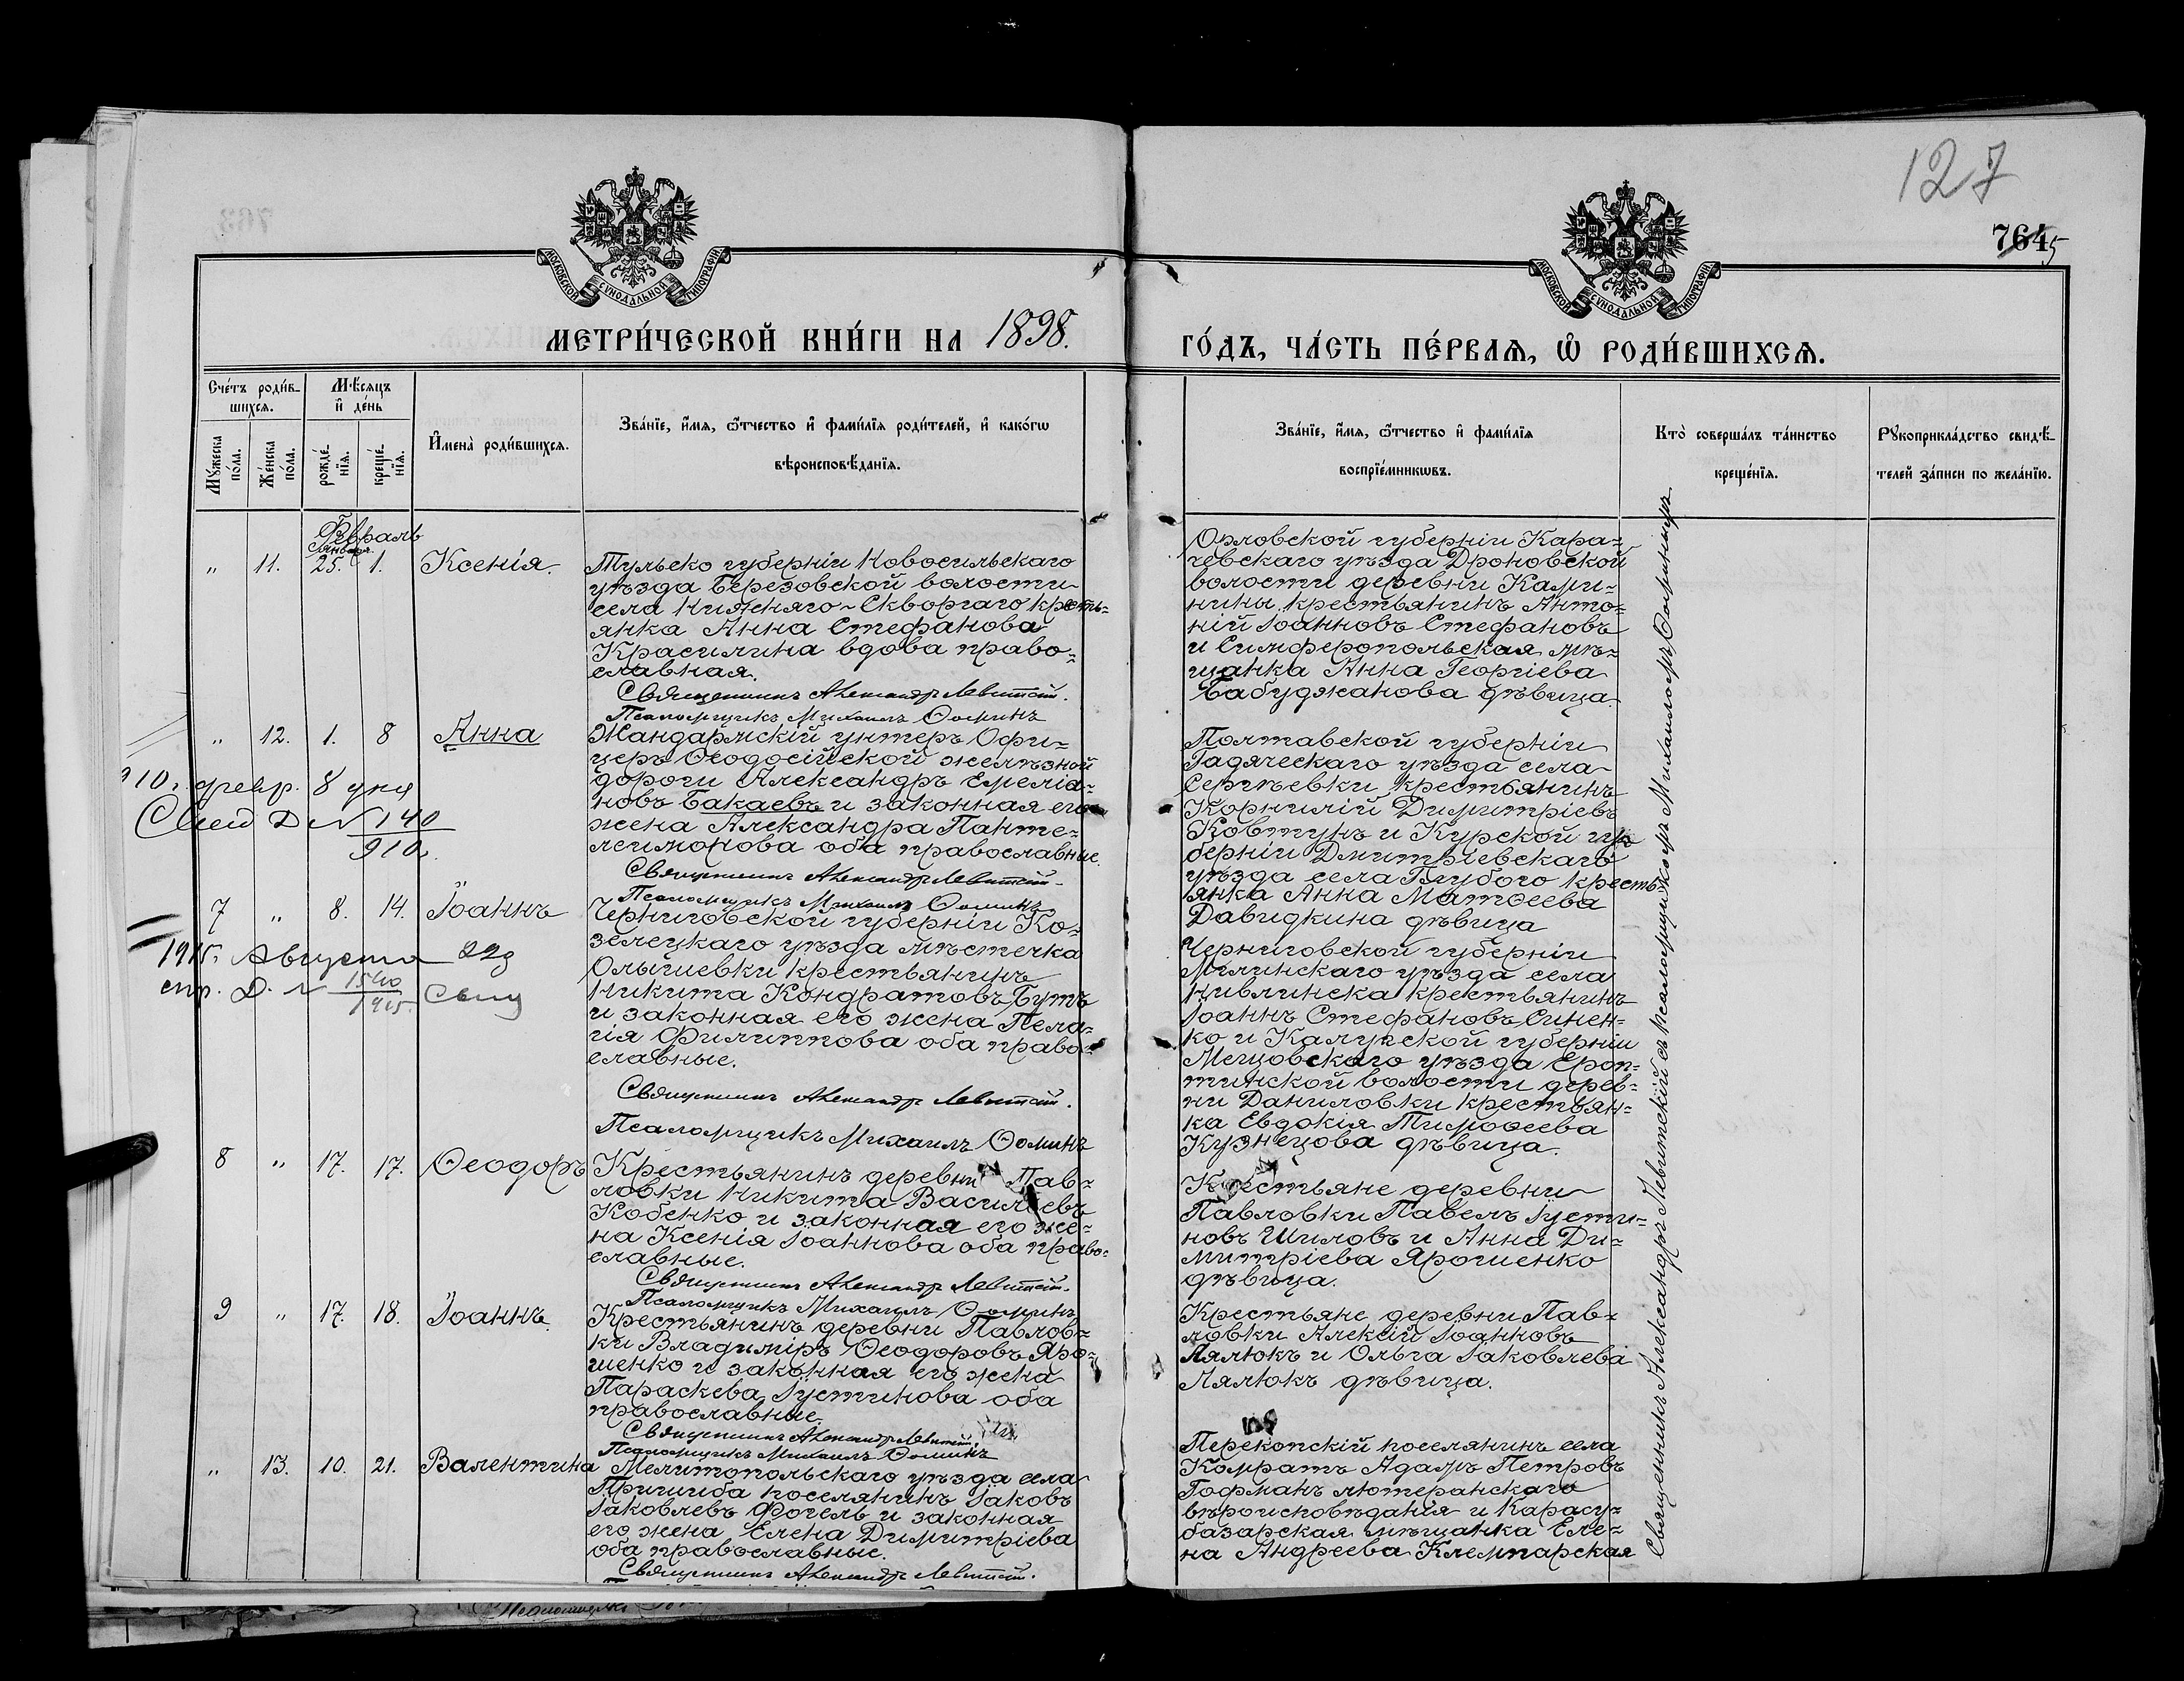 127
764 5
МОСКОВСКОЙ СѴНОДАЛЬНОЙ ТИПОГРАФІИ.
МОСКОВСКОЙ СѴНОДАЛЬНОЙ ТИПОГРАФІИ.
МЕТРИ́ЧЕСКОЙ КНИ́ГИ НА 1898.
ГО́ДЪ, ЧА́СТЬ ПЕ́РВАѦ, Ѽ РОДИ́ВШИХСѦ.
Сче́тъ роди́в-
шихся.
Мꙋ́жеска по́ла.
Же́нска по́ла.
Мѣ́сяцъ
и҆ де́нь
рожде́-
нїя.
креще́-
нїя.
И҆мена̀ роди́вшихся.
Зва́нїе, и҆́мя, ѻ҆́тчество и҆ фами́лїя роди́телей, и҆ како́гѡ
вѣроисповѣ́данїя.
Зва́нїе, и҆́мя, ѻ҆́тчество и҆ фами́лїя
воспрїе́мникѡвъ.
Кто̀ соверша́лъ та́инство
креще́нїя.
Рꙋкоприкла́дство свидѣ́-
телей за́писи по жела́нїю.
Февраль
Января.
„ 11. 25. 1. Ксенія.
Тульско губерніи Новосильскаго
уѣзда Березовской волости
села Нижняго-Скворгаго кресть-
янка Анна Стефанова
Красилина вдова право-
славная.
Священникъ Александръ Левитскій.
Псаломщикъ Михаилъ Ѳоминъ
Орловской губерніи Кара-
чевскаго уѣзда Дроновской
волости деревни Ками-
нины крестьянинъ Анто-
ній Іоанновъ Стефановъ
и Симферопольская мѣ-
щанка Анна Георгіева
Бабуджанова дѣвица.
„ 12. 1. 8 Анна
Жандармскій унтеръ Офи-
церъ Ѳеодосійской желѣзной
дороги Александръ Емеліа-
новъ Бакаевъ и законная его
жена Александра Панте-
леимонова оба православные.
Священникъ Александръ Левитскій.
Псаломщикъ Михаилъ Ѳоминъ
910 г. февр. 8 дня
Свид Д № 140
910 г.
Полтавской губерніи
Гадяческаго уѣзда села
Сергѣевки крестьянинъ
Корнилій Димитріевъ
Ковтунъ и Курской гу-
берніи Дмитріевскаго
уѣзда села Глубого кресть-
янка Анна Матѳеева
Давидкина дѣвица
7 „ 8. 14. Іоаннъ
Черниговской губерніи Ко-
зелецкаго уѣзда мѣстечка
Олышевки крестьянинъ
Никита Кондратовъ Бутъ
и законная его жена Пела-
гія Филиппова оба право-
славные.
Священникъ Александръ Левитскій.
Псаломщикъ Михаилъ Ѳоминъ
1915 г. Августа 22д
спр. Д. № 1540
1915.
Черниговской губерніи
Мглинскаго уѣзда села
Нивлинска крестьянинъ
Іоаннъ Стефановъ Синен-
ко и Калужской губерніи
Мещовскаго уѣзда Ероп-
тинской волости дерев-
ни Даниловки крестьян-
ка Евдокія Тимоѳеева
Кузнецова дѣвица.
8 „ 17. 17. Ѳеодоръ
Крестьянинъ деревни Пав-
ловки Никита Васильевъ
Кобенко и законная его же-
на Ксенія Іоаннова оба право-
славные.
Священникъ Александръ Левитскій.
Псаломщикъ Михаилъ Ѳоминъ
Крестьяне деревни
Павловки Павелъ Іусти-
новъ Шиловъ и Анна Ди-
митріева Ярошенко
дѣвица.
9 „ 17. 18. Іоаннъ.
Крестьянинъ деревни Павлов-
ки Владиміръ Ѳеодоровъ Яро-
шенко и законная его жена
Параскева Іустинова оба
православные.
Священникъ Александръ Левитскій.
Псаломщикъ Михаилъ Ѳоминъ
Крестьяне деревни Пав-
ловки Алексій Іоанновъ
Лялюкъ и Ольга Іаковлева
Лялюкъ дѣвица.
„ 13. 10. 21. Валентина
Мелитопольскаго уѣзда села
Пришиба поселянинъ Іаковъ
Іаковлевъ Фогель и законная
его жена Елена Димитріева
оба православные.
Священникъ Александръ Левитскій.
Перекопскій поселянинъ села
Комратъ Адамъ Петровъ
Гофманъ лютеранскаго
вѣроисповѣданія и Карасу-
базарская мѣщанка Еле-
на Андреева Клемпарская
Священникъ Александръ Левитскій съ псаломщикомъ Михаиломъ Ѳоминымъ